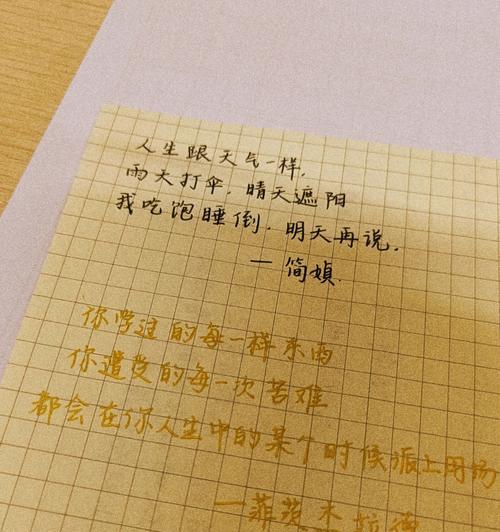 人生跟天气一样，
雨天打伞，晴天遮阳
我吃饱睡倒，明天再说．
一简媜
你学过的每一样东西
你遭受的每一次苦难
都会在你人生中的某个时候派上用场
一菲茨杰拉